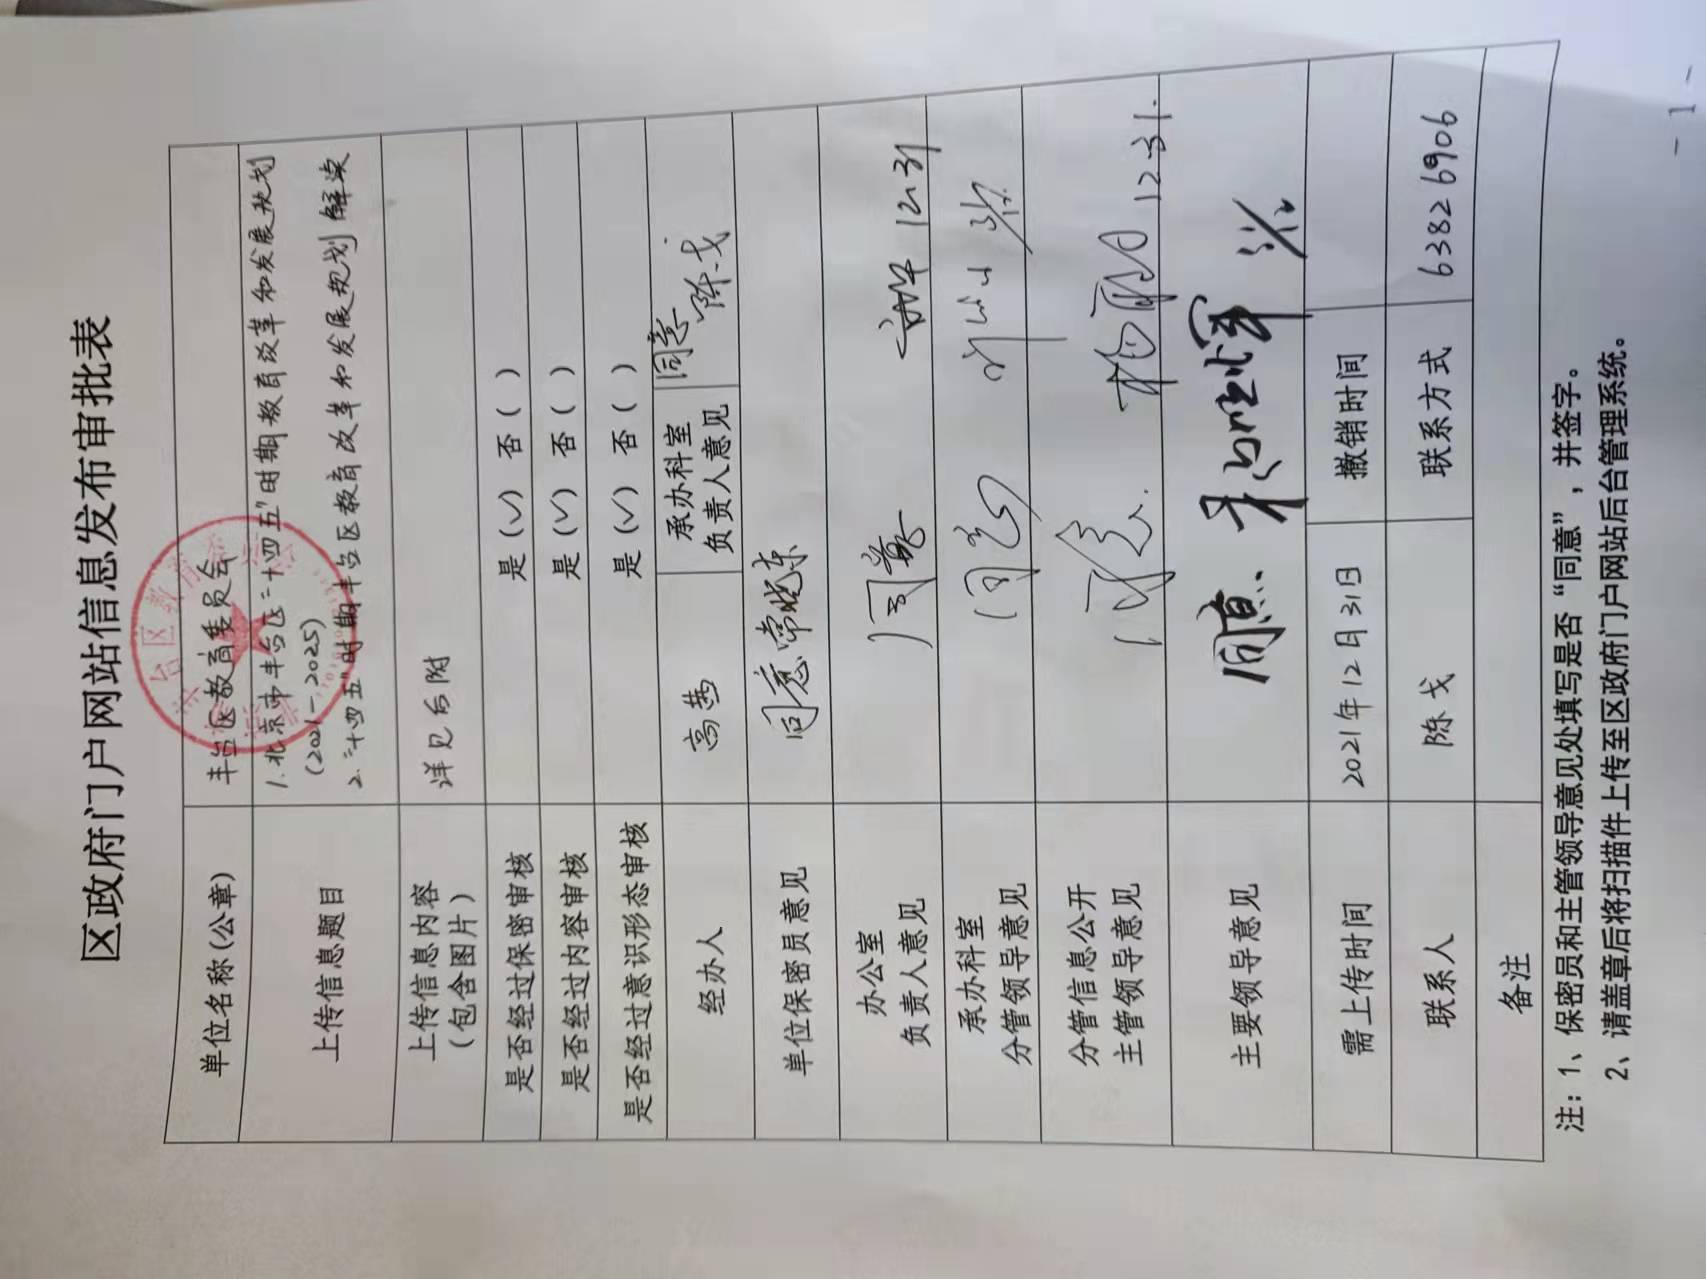 区政府门户网站信息发布审批表
单位名称(公章) 丰台区教育委员会
上传信息题目 1.北京市丰台区"十四五"时期教育改革和发展规划
(2021—2025)
2."十四五"时期丰台区教育改革和发展规划解读
上传信息内容
(包含图片) 详见后附
是否经过保密审核 是(√) 否( )
是否经过内容审核 是(√) 否( )
是否经过意识形态审核 是(√) 否( )
经办人 高茜 承办科室
负责人意见 同意 陈戈
单位保密员意见 同意 常晓东
办公室
负责人意见 同意 12.31
承办科室
分管领导意见 同意
分管信息公开
主管领导意见 同意 12.31.
主要领导意见 同意.
需上传时间 2021年12月31日 撤销时间
联系人 陈戈 联系方式 63826906
备注
注:1、保密员和主管领导意见处填写是否“同意”,并签字。
2、请盖章后将扫描件上传至区政府门户网站后台管理系统。
- 1 -